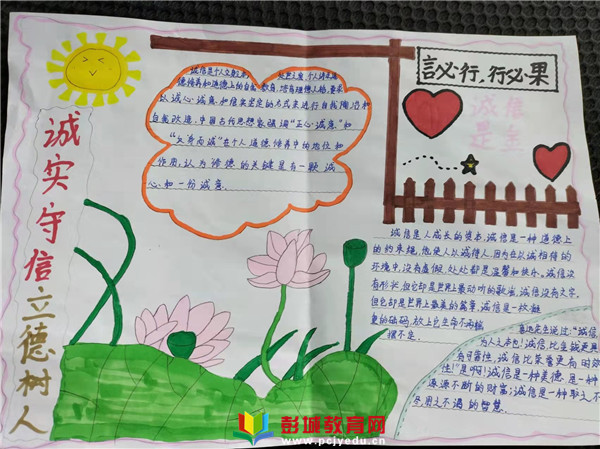 诚实守信立德树人
言必行、行必果
诚信
是金
诚信是个人立身之本,处世之宝,个人讲求道
德修养和道德上的自我教育,培育理想人格,要求
以诚心诚意和信实坚定的方式来进行自我陶冶和
自我改造,中国古代思想家强调“正心诚意”和
“义身而诚”在个人道德修养中的地位和
作用,认为修德的关键是有一颗诚
心和一份诚意.
诚信是人成长的资本,诚信是一种道德上
的约束绳,他使人以诚待人,因为在以诚相待的
环境中,没有虚假,处处都是温馨和快乐。诚信没
有形状,但它却是世界上最动听的歌曲,诚信没有文字,
但它却是世界上最美的篇章,诚信是一枚
重的砝码,放上它生命不再摇
摆不定.
莫迪尼里说过:“诚信
为人之本也!诚信比金钱更具
有
诚信比荣誉更有时效
性!”是啊!诚信是一种美德,是一种
源源不断的财富;诚信是一种取之不
尽,用之不竭的智慧.
彭城教育网
www.pcjyedu.cn